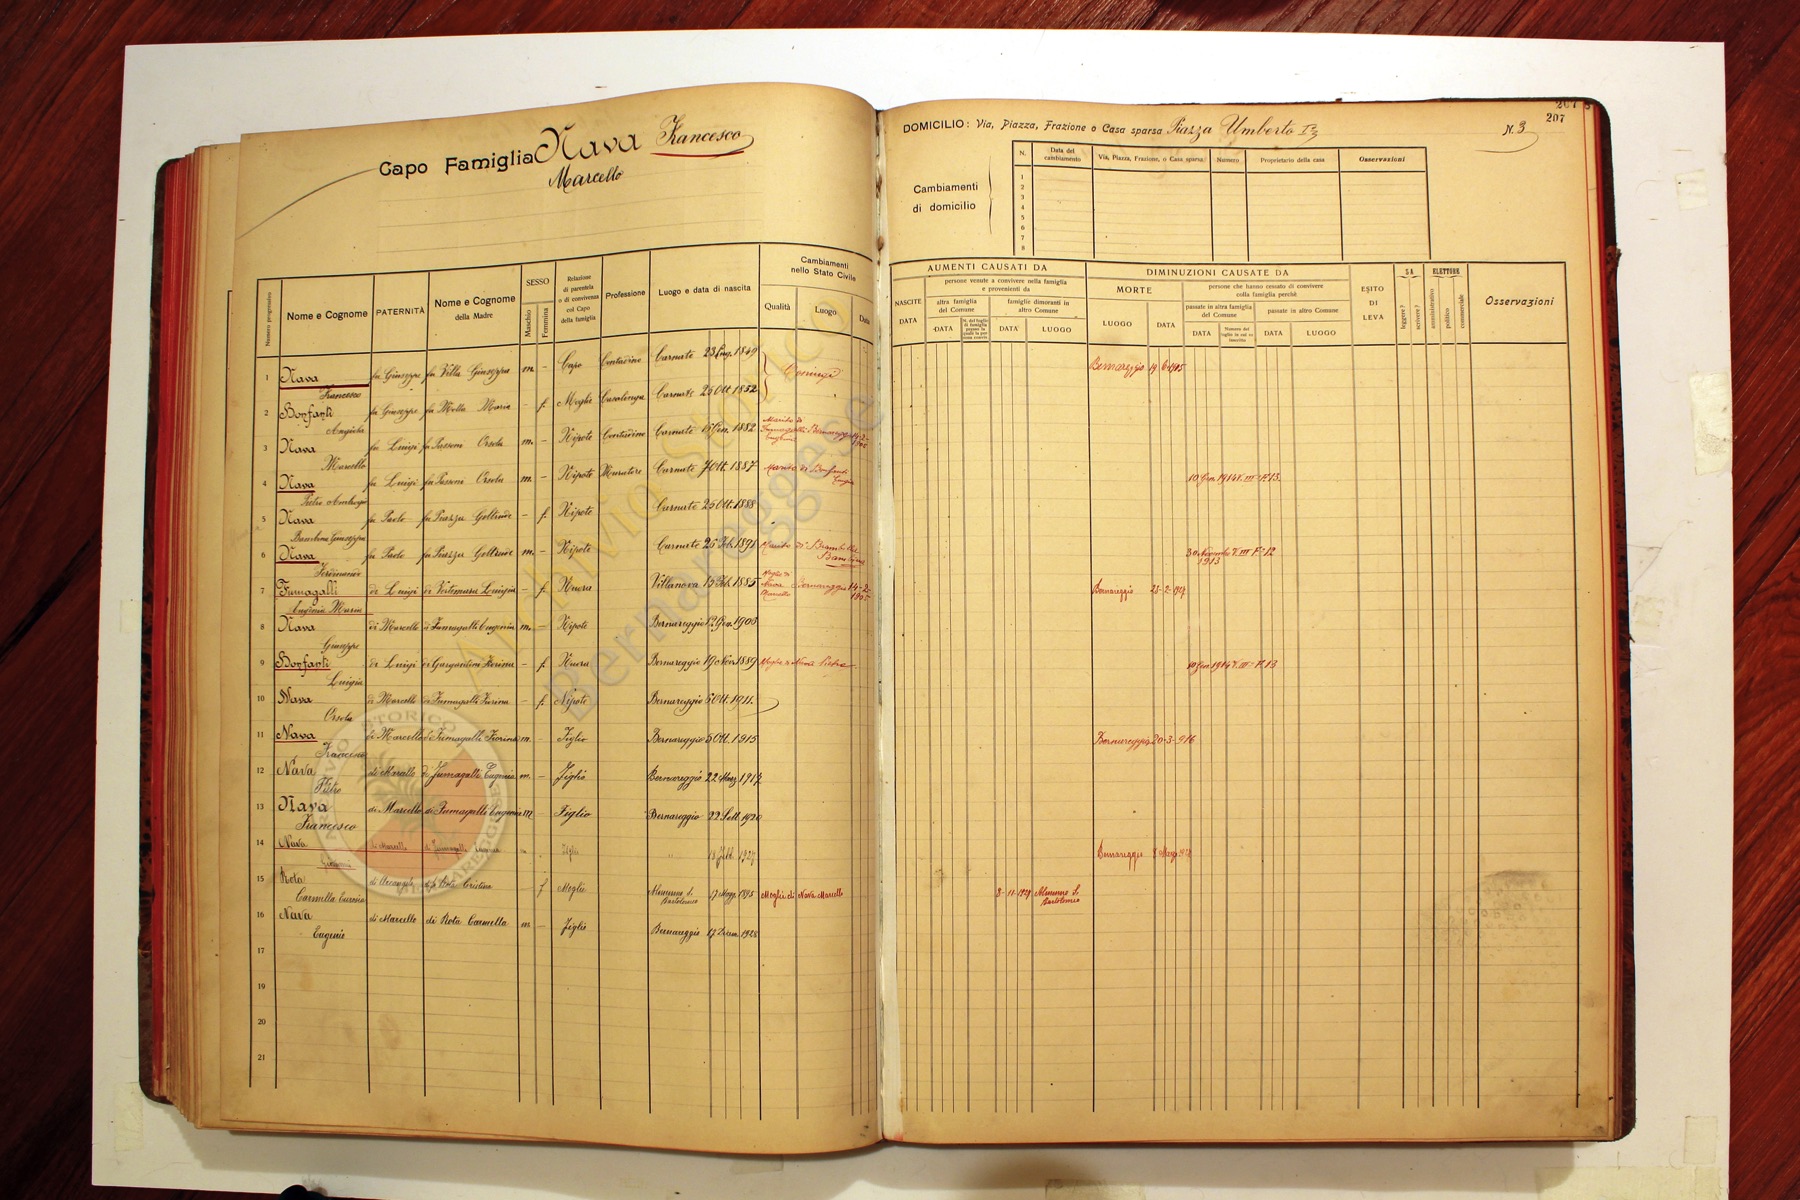 Capo Famiglia Nava Francesco
Marcello
207
207
DOMICILIO: Via, Piazza, Frazione o Casa sparsa Piazza Umberto I°
N. 3
Cambiamenti di domicilio
N. Data del cambiamento Via, Piazza, Frazione, o Casa sparsa Numero Proprietario della casa Osservazioni
1
2
3
4
5
6
7
8
Numero progressivo Nome e Cognome PATERNITÀ Nome e Cognome della Madre SESSO Maschio Femmina Relazione di parentela o di convivenza col Capo della famiglia Professione Luogo e data di nascita Cambiamenti nello Stato Civile Qualità Luogo Data
AUMENTI CAUSATI DA
NASCITE DATA
persone venute a convivere nella famiglia e provenienti da
altra famiglia del Comune DATA
famiglie dimoranti in altro Comune DATA LUOGO
DIMINUZIONI CAUSATE DA
MORTE LUOGO DATA
persone che hanno cessato di convivere colla famiglia perchè
passate in altra famiglia del Comune DATA
passate in altro Comune DATA LUOGO
ESITO DI LEVA
SA leggere? scrivere?
ELETTORE amministrativo politico commerciale
Osservazioni
1 Nava Francesco fu Giuseppe fu Villa Giuseppa m. - Capo Contadino Carnate 23 1849 Bernareggio
2 Bonfanti Angiola fu Giuseppe fu Motta Maria - f. Moglie Casalinga Carnate 25 Ott. 1852
3 Nava Marcello fu Luigi fu Passoni Orsola m. - Nipote Contadino Carnate 1882 Marito di Fumagalli Eugenia Bernareggio
4 Nava Pietro Ambrogio fu Luigi fu Passoni Orsola m. - Nipote Muratore Carnate 7 Ott. 1887 Marito di Bonfanti Luigia 10 Gen. 1914 V. III F. 13
5 Nava Giuseppa fu Paolo fu Piazza Geltrude - f. Nipote Carnate 25 Ott. 1888
6 Nava Ferdinando fu Paolo fu Piazza Geltrude m. - Nipote Carnate 25 Feb. 1891 Marito di Brambilla 30 Novembre 1913 V. III F. 12
7 Fumagalli Eugenia Maria di Luigi di Vertemara Luigia - f. Nuora Villanova 15 1885 Moglie di Nava Marcello Bernareggio 14-2- Bernareggio 28-2-1927
8 Nava Giuseppe di Marcello di Fumagalli Eugenia m. - Nipote Bernareggio 12 Gen. 1908
9 Bonfanti Luigia di Luigi di - f. Nuora Bernareggio 19 Nov. 1889 Moglie di Nava Pietro 10 Gen. 1914 V. III F. 13
10 Nava Orsola di Marcello di Fumagalli - f. Nipote Bernareggio 5 Ott. 1911.
11 Nava Francesco di Marcello di Fumagalli m. - Figlio Bernareggio 5 Ott. 1915 Bernareggio 20-3-916
12 Nava Pietro di Marcello di Fumagalli Eugenia m. - Figlio Bernareggio 22 Marz. 1917
13 Nava Francesco di Marcello di Fumagalli Eugenia m. - Figlio Bernareggio 22 Sett. 1920
14 Nava di Marcello di Fumagalli Eugenia Figlio Febb. 1927 Bernareggio
15 Rota Carmella di Arcangelo di Rota Cristina f Moglie Almenno S. Bartolomeo 17 Magg. 1895 Moglie di Nava Marcello 8-11-1927 Almenno S. Bartolomeo
16 Nava Eugenio di Marcello di Rota Carmella m - Figlio Bernareggio 17 1928
17
18
19
20
21
Archivio Storico
Bernareggese
ARCHIVIO STORICO BERNAREGGESE